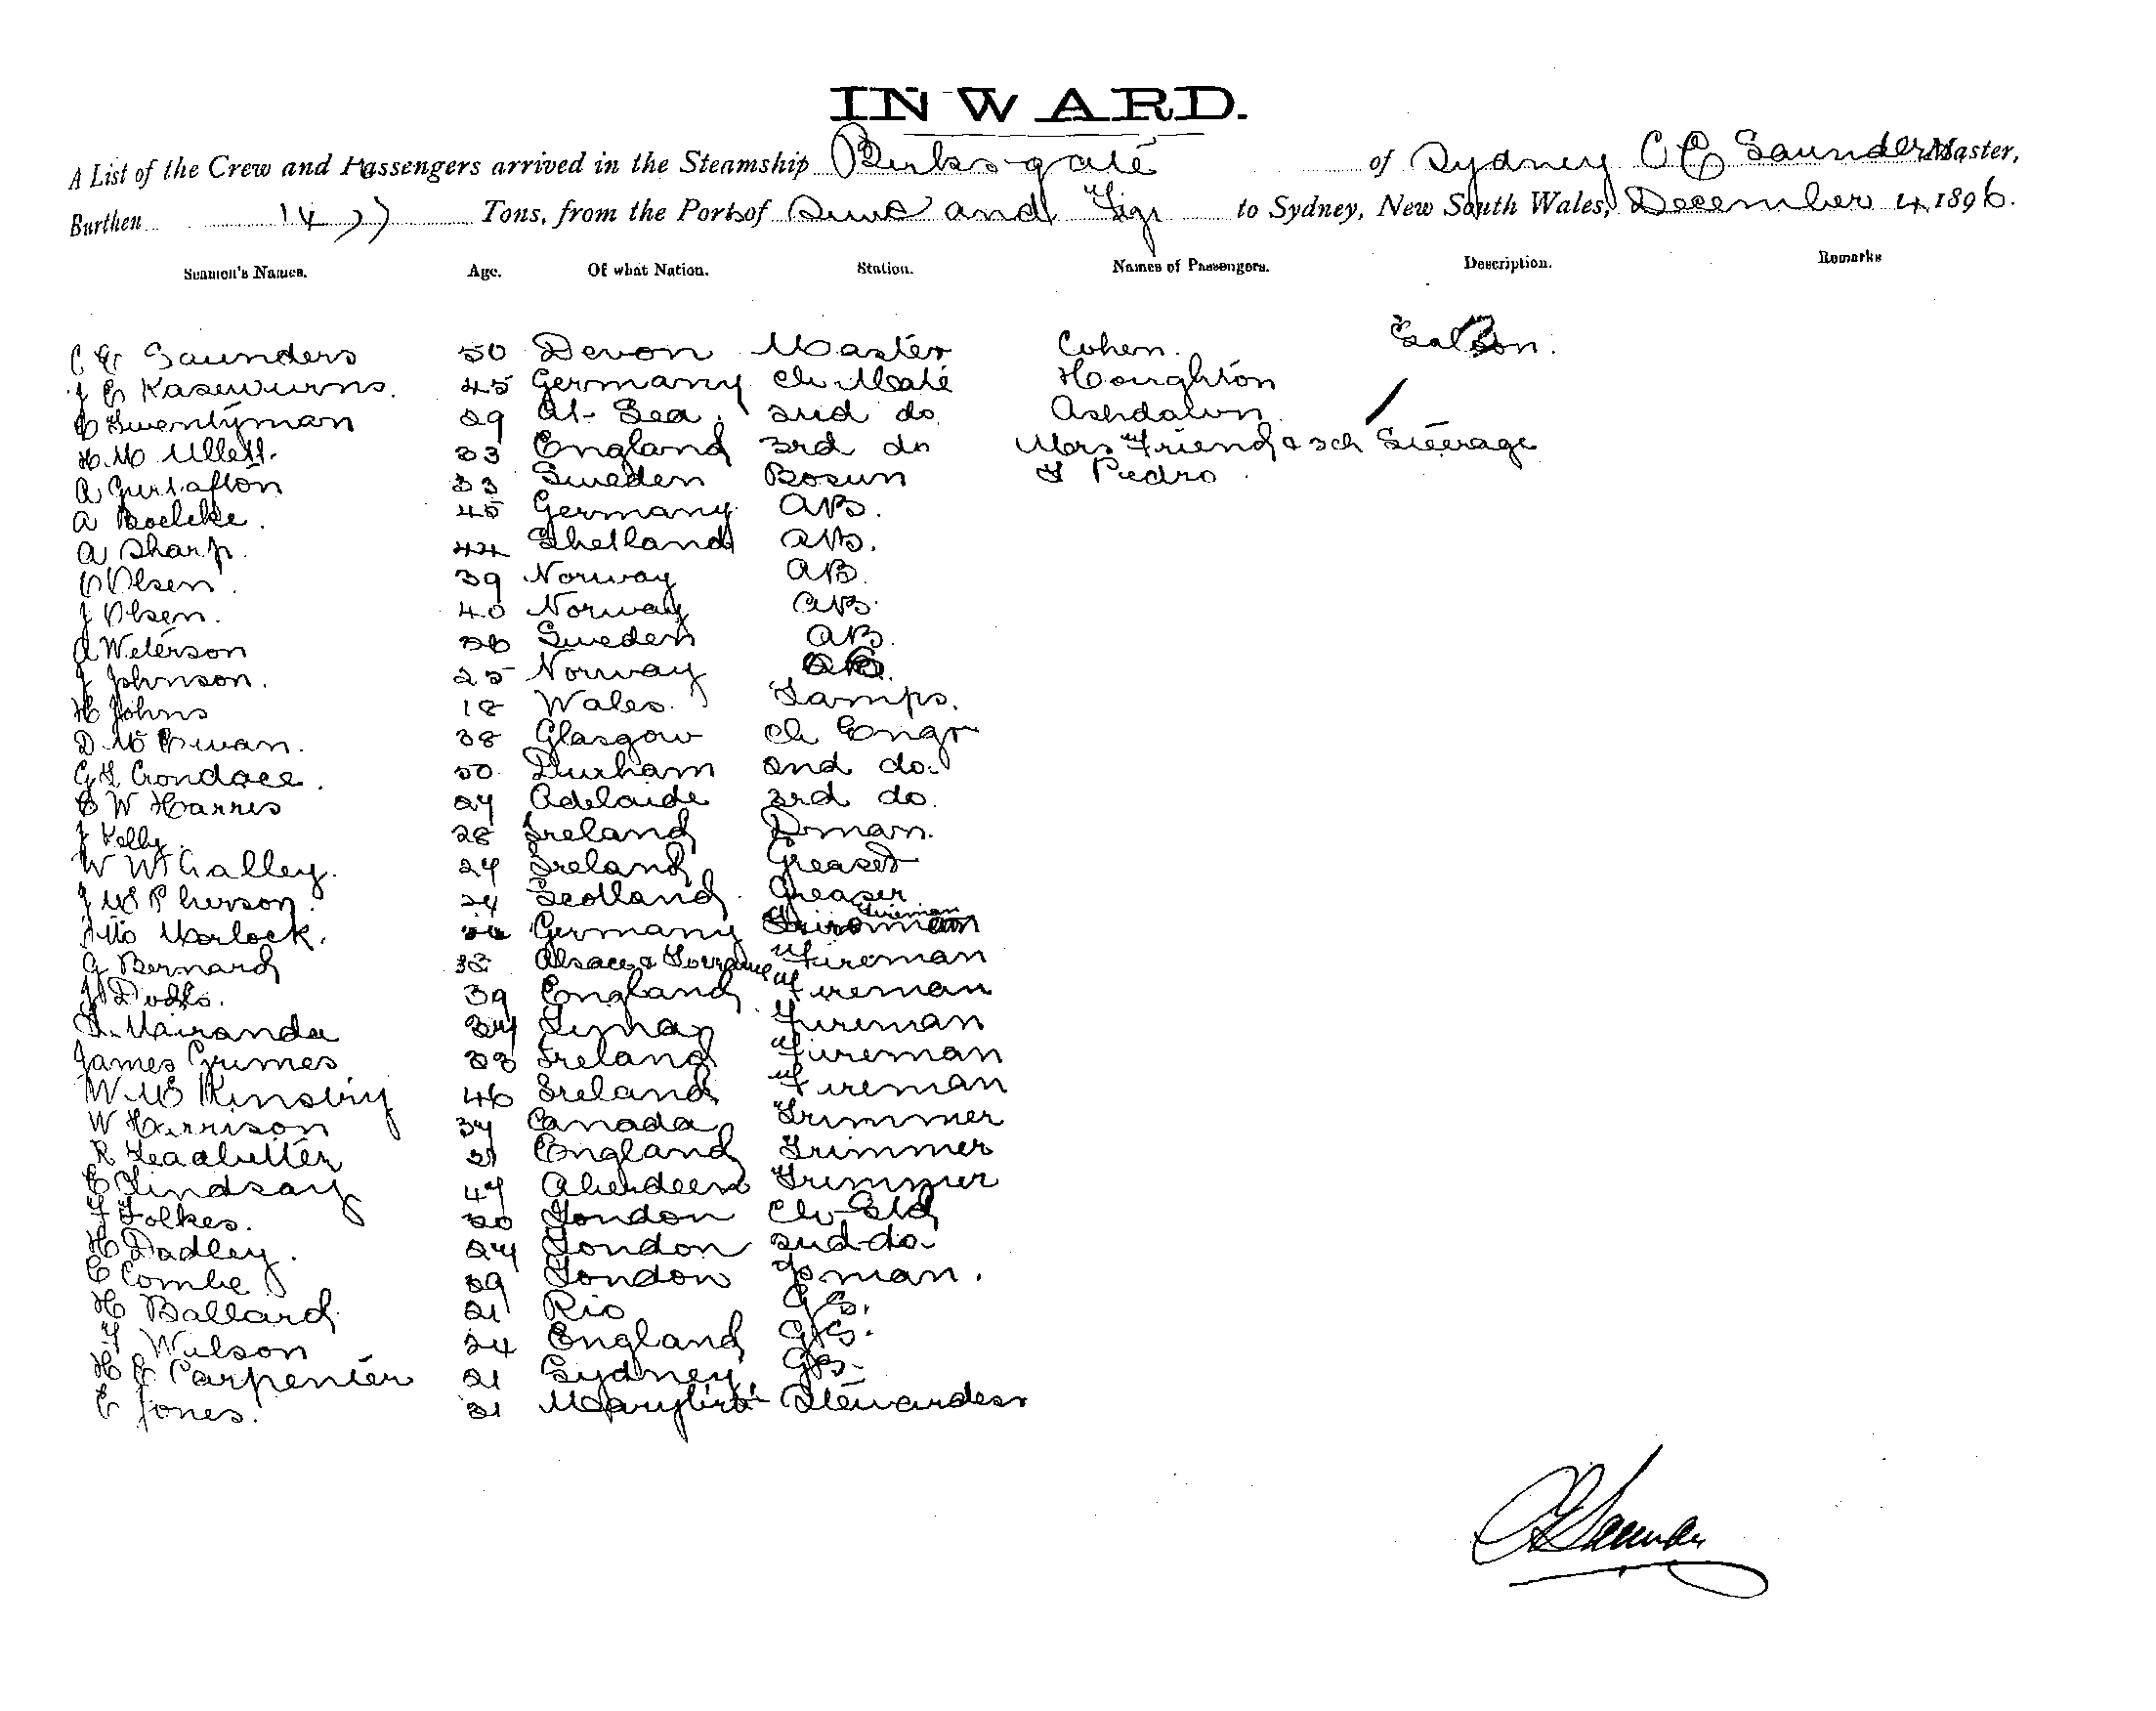 INWARD.
A List of the Crew and Passengers arrived in the Steamship Birksgate of Sydney C E Saunders Master,
Burthen 1477 Tons, from the Ports of Suva and Fiji to Sydney, New South Wales, December 4 1896.
Seamen's Names. Age. Of what Nation. Station. Names of Passengers. Description. Remarks
C E Saunders 50 Devon Master Cohen. Saloon.
J E 45 Germany Ch Mate Houghton
C Twentyman 29 At Sea. 2nd do Ashdown
H. M Ullett. 33 England 3rd do Mrs Friend & 3ch Steerage
A Gustafson 33 Sweden Bosun Pedro
A Boelcke. 45 Germany AB.
A Sharp. 44 Shetland AB.
Olsen. 39 Norway AB.
J Olsen. 40 Norway AB.
A Weterson 26 Sweden AB.
J Johnson. 25 Norway AB.
H Johns 18 Wales. Lamps.
D. McEwan. 38 Glasgow Ch Engr
G. L Crondace. 50 Durham 2nd do.
C W Harris 27 Adelaide 3rd do.
J Kelly. 28 Ireland Dman.
W Whalley. 24 Ireland Greaser
J McPherson. 24 Scotland Greaser
Otto Morlock. Germany Fireman
G Bernard 38 Alsace & Lorraine Fireman
J Dodds. 39 England Fireman
Miranda 34 Fireman
James Grimes 33 Ireland Fireman
W. Mc 46 Ireland Fireman
W Harrison 34 Canada Trimmer
R Leadbitter 31 England Trimmer
C Lindsay 47 Aberdeen Trimmer
F Folkes. 30 London Ch Std
H Dadley. 24 London 2nd do.
C Combe 29 London Fman.
H Ballard 21 Rio GS.
F Wilson 24 England GS.
H E Carpenter 21 Sydney GS
E Jones. 31 Marybro' Stewardess
C E Saunders